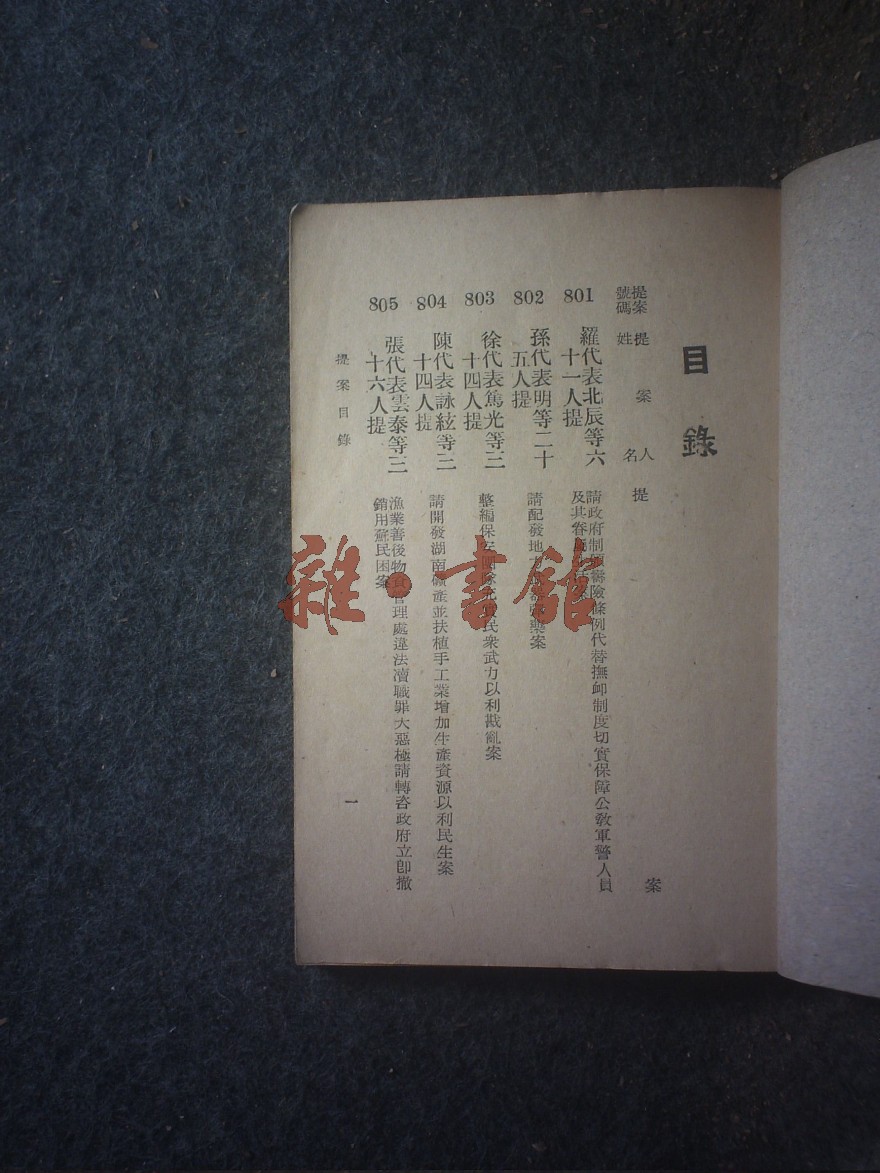 目錄
提案號碼 提案人姓名 提案
801 羅代表北辰等六十一人提
請政府制頒壽險條例代替撫卹制度切實保障公教軍警人員
及其眷屬案
802 孫代表明等二十五人提
請配發地方彈藥案
803 徐代表篤光等三十四人提
整編保安團隊充民衆武力以利戡亂案
804 陳代表詠絃等三十四人提
請開發湖南礦產並扶植手工業增加生產資源以利民生案
805 張代表雲泰等三十六人提
漁業善後物資管理處違法瀆職罪大惡極請轉咨政府立卽撤
銷用蘇民困案
提案目錄
一
雜·書館